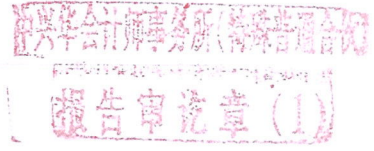 中兴华会计师事务所(特殊普通合伙)
报告审讫章(1)